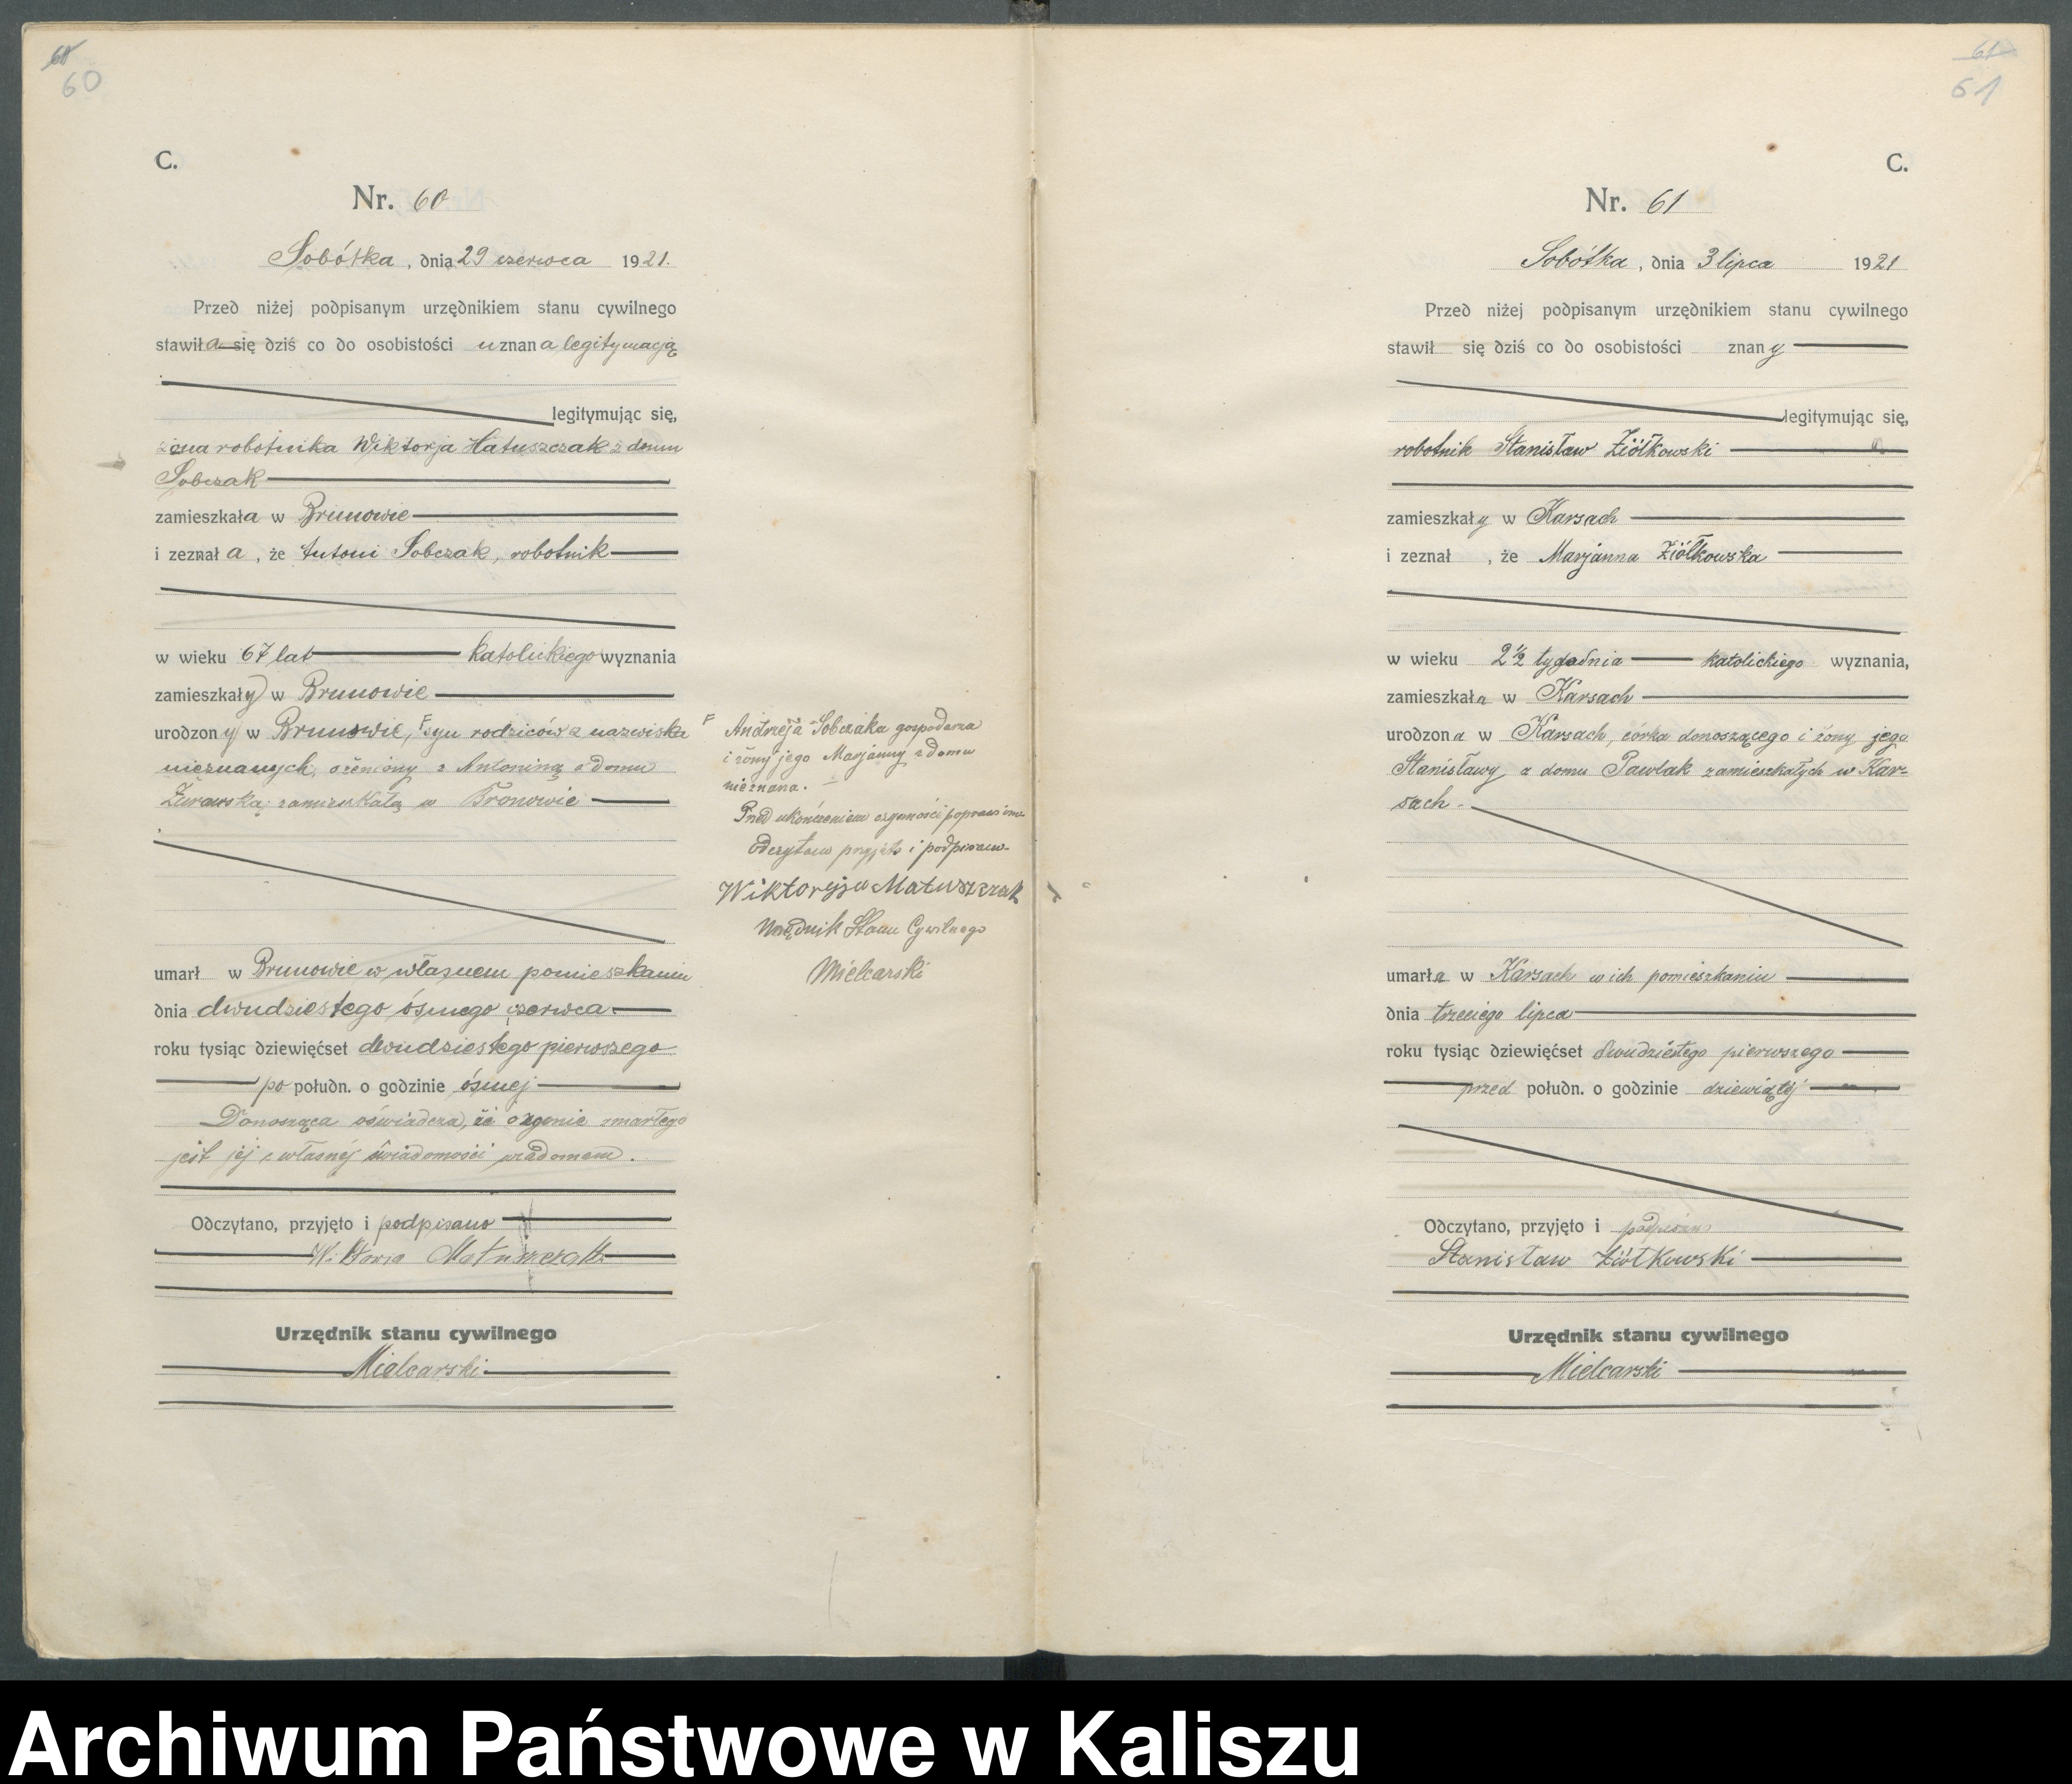 60
60
C.
Nr. 60
Sobótka, dnia 29 czerwca 1921.
Przed niżej podpisanym urzędnikiem stanu cywilnego
stawiła się dziś co do osobistości uznana legitymacją
legitymując się,
żona robotnika Wiktorja Matuszczak z domu
Sobczak
zamieszkała w Brunowie
i zeznała, że Antoni Sobczak, robotnik
w wieku 67 lat katolickiego wyznania
zamieszkały w Brunowie
urodzony w Brunowie, F syn rodziców z nazwiska
nieznanych, ożeniony z Antoniną z domu
Żurawską zamieszkałą w Bronowie
umarł w Brunowie w własnem pomieszkaniu
dnia dwudziestego ósmego czerwca
roku tysiąc dziewięćset dwudziestego pierwszego
po połudn. o godzinie ósmej
Donosząca oświadcza, że o zgonie zmarłego
jest jej z własnej świadomości wiadomem.
Odczytano, przyjęto i podpisano
Wiktoria Matuszczak
Urzędnik stanu cywilnego
Mielcarski
F Andrzeja Sobczaka gospodarza
i żony jego Marjanny z domu
nieznana. —
Przed ukończeniem czynności poprawiono
Odczytano przyjęto i podpisano
Wiktoryja Matuszczak
Urzędnik Stanu Cywilnego
Mielcarski
61
61
C.
Nr. 61
Sobótka, dnia 3 lipca 1921
Przed niżej podpisanym urzędnikiem stanu cywilnego
stawił się dziś co do osobistości znany
legitymując się,
robotnik Stanisław Ziółkowski
zamieszkały w Karsach
i zeznał, że Marjanna Ziółkowska
w wieku 2 1/2 tygodnia katolickiego wyznania,
zamieszkała w Karsach
urodzona w Karsach, córka donoszącego i żony jego
Stanisławy z domu Pawlak zamieszkałych w Kar-
sach.
umarła w Karsach w ich pomieszkaniu
dnia trzeciego lipca
roku tysiąc dziewięćset dwudziestego pierwszego
przed połudn. o godzinie dziewiątej
Odczytano, przyjęto i podpisano
Stanisław Ziółkowski
Urzędnik stanu cywilnego
Mielcarski
Archiwum Państwowe w Kaliszu